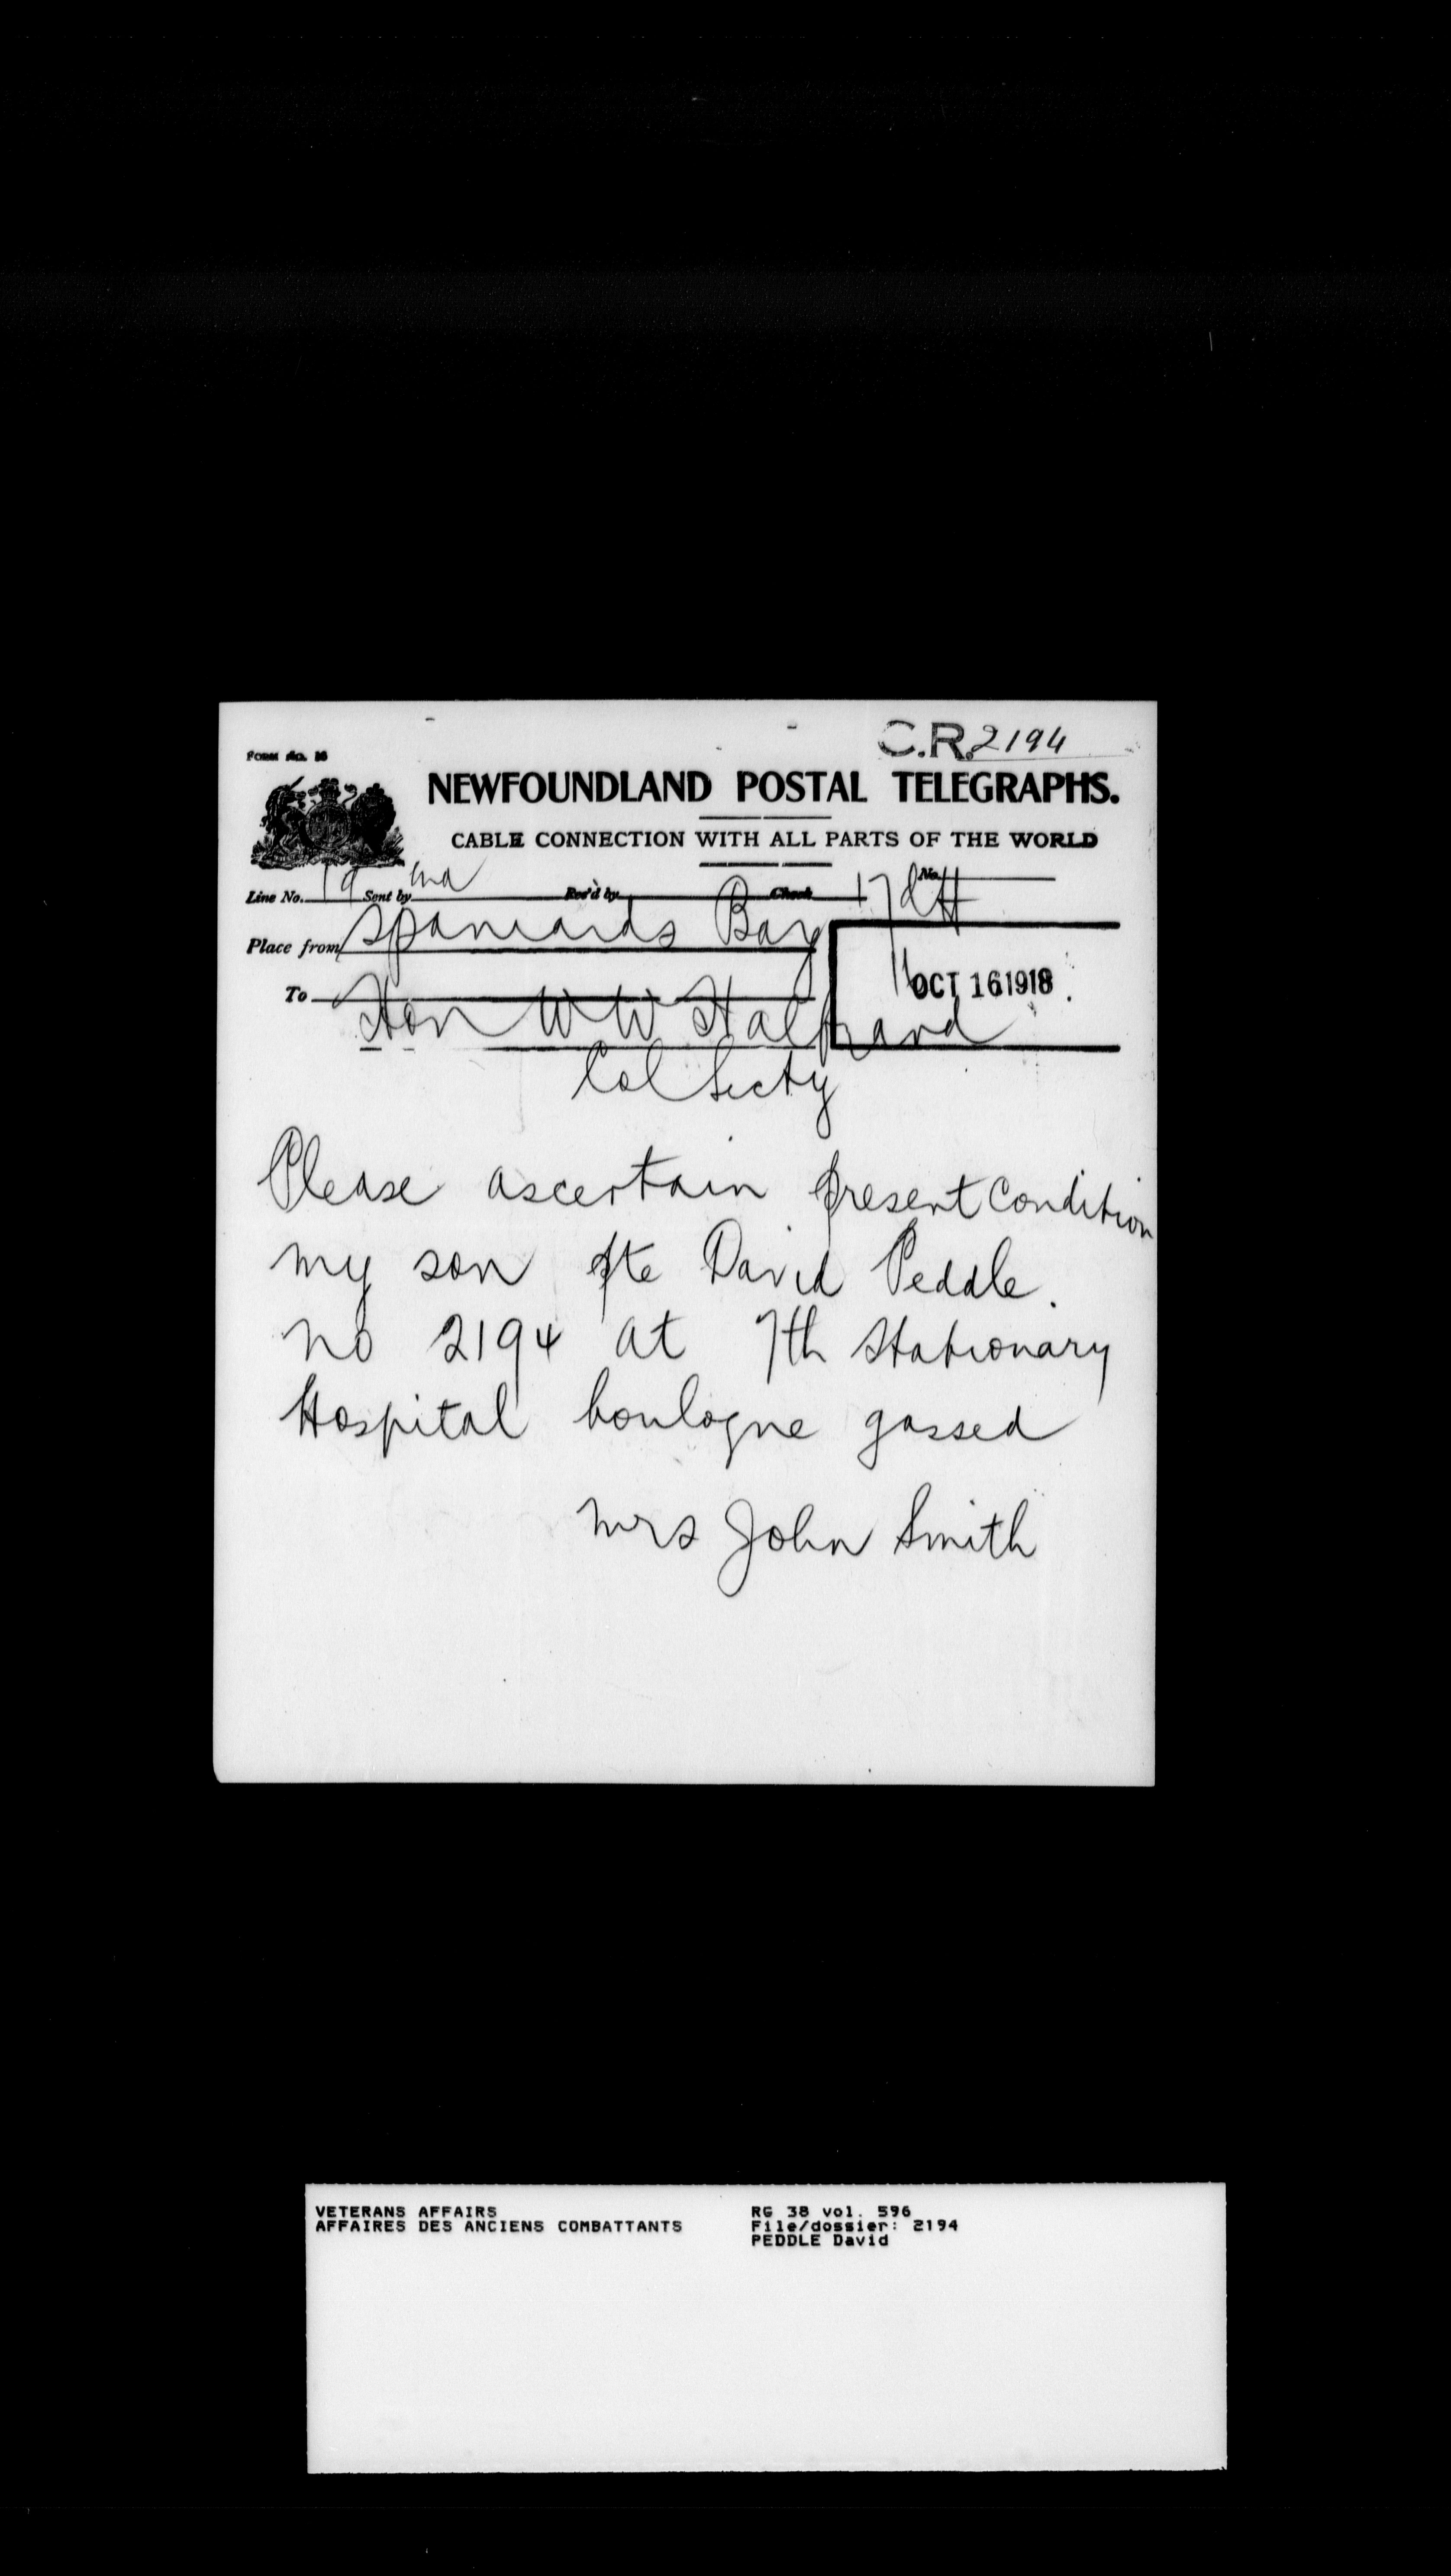 C.R. 2194
FORM No. 16
NEWFOUNDLAND POSTAL TELEGRAPHS.
CABLE CONNECTION WITH ALL PARTS OF THE WORLD
Line No. 19 Sent by Rec'd by Check 17 No.
Place from Spaniards Bay
OCT 16 1918
To Hon W W Halfyard
Col Secty
Please ascertain present condition
my son Pte David Peddle.
no 2194 at 7th Stationary
Hospital boulogne gassed
Mrs John Smith
VETERANS AFFAIRS
AFFAIRES DES ANCIENS COMBATTANTS
RG 38 vol. 596
File/dossier: 2194
PEDDLE David